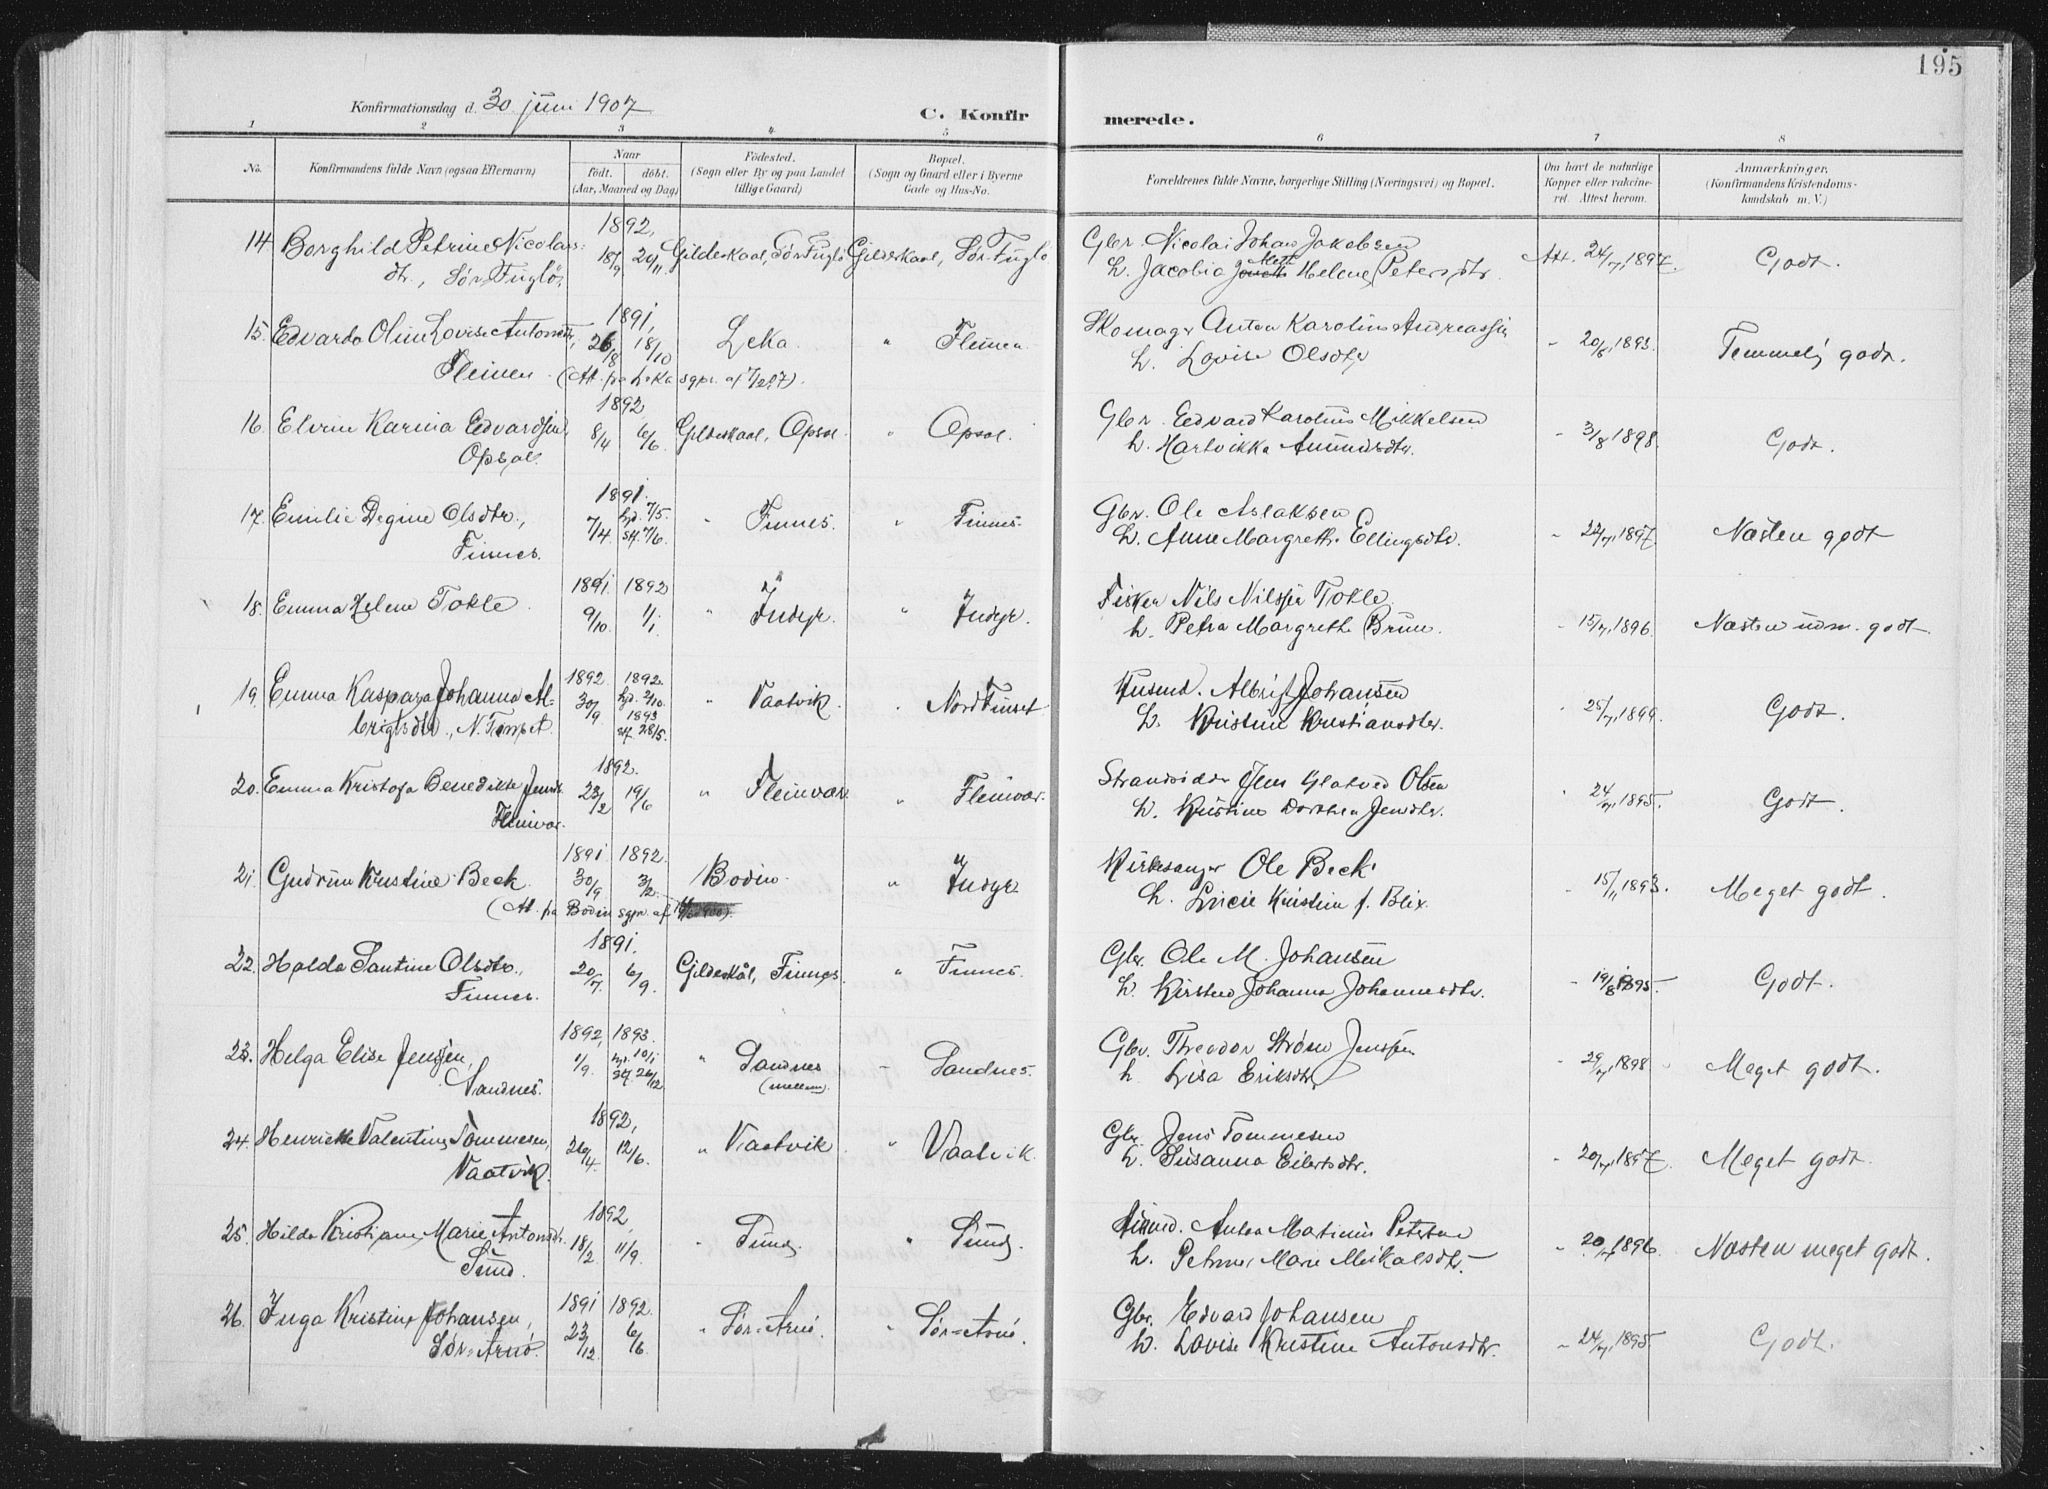 195
Konfirmationsdag d. 30 juni 1907
C. Konfirmerede.
1 2 3 4 5 6 7 8
No.
Konfirmandens fulde Navn (ogsaa Efternavn)
Naar
født. døbt.
(Aar, Maaned og Dag)
Fødested.
(Sogn eller By og paa Landet
tillige Gaard)
Bopæl.
(Sogn og Gaard eller i Byerne
Gade og Hus-No.
Forældrenes fulde Navne, borgerlige Stilling (Næringsvei) og Bopæl.
Om havt de naturlige
Kopper eller vakcine-
ret. Attest herom.
Anmærkninger.
(Konfirmandens Kristendoms-
kundskab m. V.)
1892,
14. Borghild Petrine Nicolais- 18/9 20/11 Gildeskaal, Sør Fuglø Gildeskaal, Sør-Fuglø Gbr. Nicolai Johan Jakobsen Att. 24/7, 1897. Godt.
dtr., Sør-Fuglø. h. Jacobia Mett Helene Petersdtr.
1891,
15. Edvarda Oline Lovise Antonsdtr, 26/8 18/10 Leka. " Fleinen. Skomager Anton Karolius Andreassen " 20/6, 1893. Temmelig godt.
Fleinen. (At. fra Leka sgpr. af 7/2 07). h. Lovise Olsdtr
1892,
16. Elvine Karina Edvardsen, 8/4 6/6 Gildeskaal, Opsal. " Opsal. Gbr. Edvard Karolius Mikkelsen " 3/8 1898. Godt.
Opsal. h. Hartvikka Amundsdtr.
1891.
17. Emilie Regine Olsdtr., 7/4 hjd. 7/5. stf. 7/6. " Finnes. " Finnes. Gbr. Ole Aslaksen " 22/7, 1897. Næsten godt
Finnes. h. Anne Margrethe Ellingsdtr.
1891 1892
18. Emma Helene Tokle. 9/10. 1/1. " Indyr. " Indyr. Fisker Nils Nilssen Tokle. " 15/7, 1896. Næsten udm. godt.
h. Petra Margrethe Bruun.
1892 1892.
19. Emma Kaspara Johanna Al- 30/9 hjd. 2/10. " Vaatvik. " Nord Finset Husmd. Albrigt Johansen " 25/7, 1899. Godt.
brigtsdtr., N. Finset. 1893 stf. 28/5. h. Kristine Kristiansdtr.
1892.
20. Emma Kristofa Benedikte Jensdtr 23/2 19/6 " Fleinvær " Fleinvær. Strandsidder Jens Glatved Olsen " 24/7, 1895. Godt.
Fleinvær. h. Kristine Dorthea Jensdtr.
1891 1892.
21. Gudrun Kristine Beck. 30/9 3/2. Bodin. " Indyr Kirkesanger Ole Beck " 15/11 1893. Meget godt.
(At. fra Bodin sgpr. af h. Lucie Kristine f. Blix.
1891.
22. Halda Santine Olsdtr., 20/7. 6/9. Gildeskål, Finnes. " Finnes. Gbr. Ole M. Johansen " 19/8 1895. Godt.
Finnes. h. Kirsten Johanna Johannesdtr.
1892, 1893.
23. Helga Elise Jenssen, 1/9. hjd. 10/1 stf. 26/12 " Sandnes (mellem) " Sandnes. Gbr. Theodor Strøm Jenssen " 29/7, 1898. Meget godt.
Sandnes. h. Lisa Eriksdtr
1892,
24. Henrikke Valentine Tommesen, 26/4. 12/6. " Vaatvik " Vaatvik. Gbr. Jens Tommesen " 20/7, 1897. Meget godt.
Vaatvik. h. Susanna Eilertsdtr.
1892,
25. Hilda Kristiane Marie Antonsdtr. 18/2 11/9. " Sund. " Sund. Anton Martinus Petersen " 20/7 1896. Næsten meget godt.
Sund. h. Petrine Marie Mikalsdtr.
1891 1892.
26. Inga Kristine Johansen, 23/12. 6/6. " Sør-Arnø. " Sør-Arnø. Gbr. Edvard Johansen " 24/7, 1895. Godt.
Sør-Arnø. h. Lovise Kristine Antonsdtr.